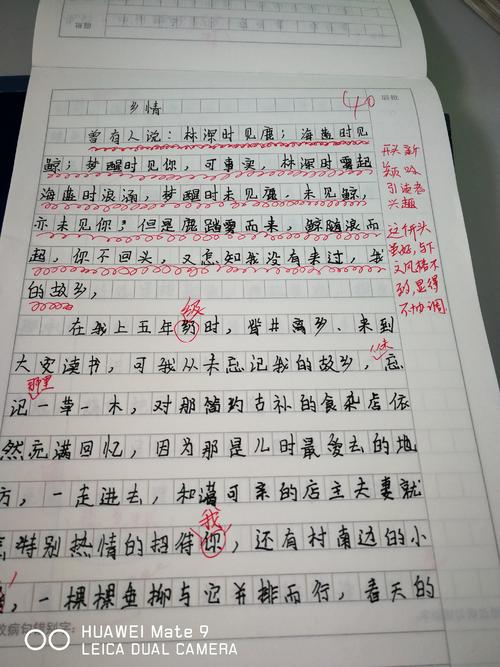 乡情
40
眉批
曾有人说：林深时见鹿；海蓝时见
鲸；梦醒时见你，可事实，林深时雾起
海蓝时浪涌，梦醒时未见鹿，未见鲸，
亦未见你；但是鹿踏雾而来，鲸随浪而
起，你不回头，又怎知我没有来过，我
的故乡，
开头新
颖
引读者
兴趣
这个开头
更好，与下
文风格不
显得
不协调
级
在我上五年纫时，背井离乡、来到
大安读书，可我从未忘记我的故乡，忘
那里
记一草一木，对那简约古朴的食杂店依
然充满回忆，因为那是儿时最爱去的地
方，一走进去，和谐可亲的店主夫妻就
我
特别热情的招待你，还有村南边的小
，一棵棵垂柳与它并排而行，春天的
HUAWEI Mate 9
LEICA DUAL CAMERA